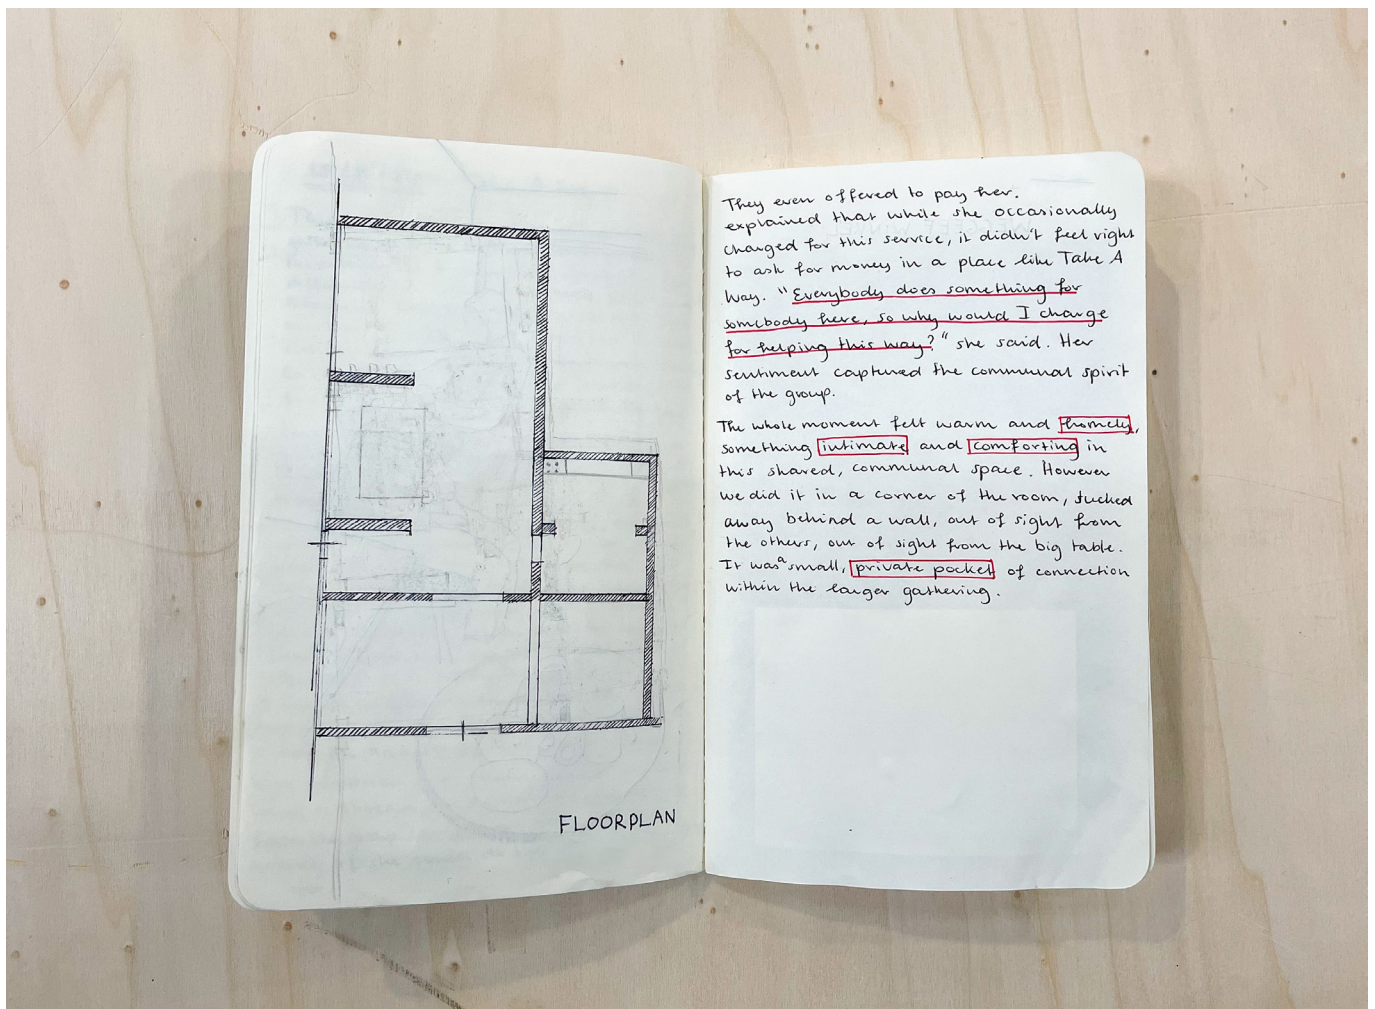 FLOORPLAN
They even offered to pay her.
explained that while she occasionally
charged for this service, it didn't feel right
to ask for money in a place like Take A
Way. "Everybody does something for
somebody here, so why would I charge
for helping this way?" she said. Her
sentiment captured the communal spirit
of the group.
The whole moment felt warm and homely,
something intimate and comforting in
this shared, communal space. However
we did it in a corner of the room, tucked
away behind a wall, out of sight from
the others, out of sight from the big table.
It was a small, private pocket of connection
within the larger gathering.